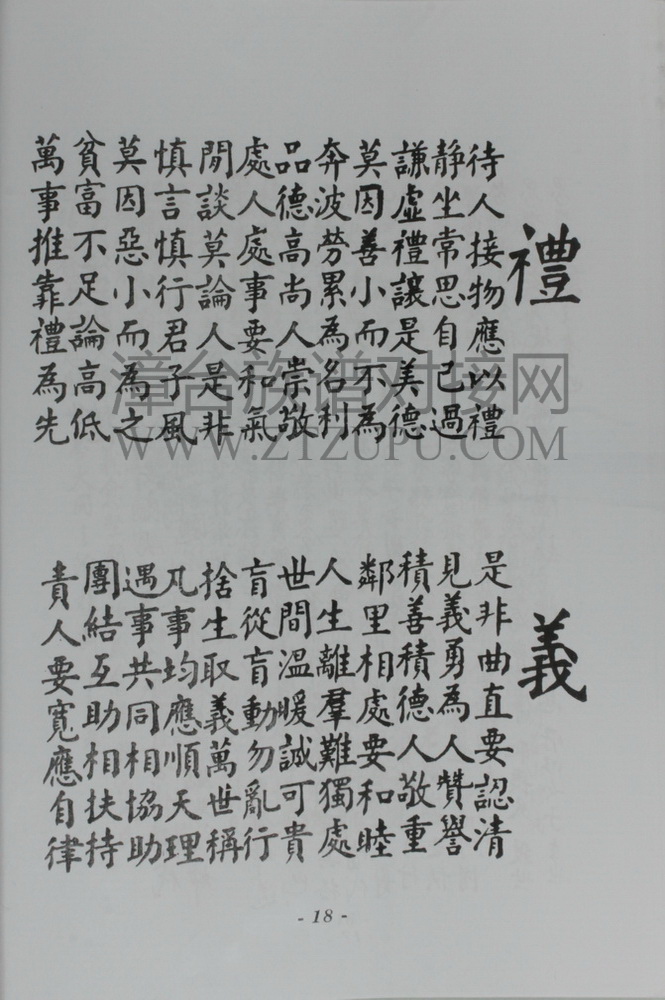 禮
待人接物應以禮
靜坐常思自己過
謙虛禮讓是美德
莫因善小而不為
奔波勞累為名利
品德高尚人崇敬
處人處事要和氣
閒談莫論人是非
慎言慎行君子風
莫因惡小而為之
貧富不足論高低
萬事推靠禮為先
義
是非曲直要認清
見義勇為人贊譽
積善積德人敬重
鄰里相處要和睦
人生離羣難獨處
世間溫暖誠可貴
盲從盲動勿亂行
捨生取義萬世稱
凡事均應順天理
遇事共同相協助
團結互助相扶持
責人要寬應自律
- 18 -
漳台族谱对接网
WWW.ZTZUPU.COM